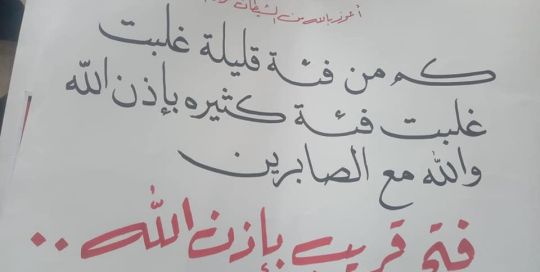 أعوذ بالله من الشيطان
كم من فئة قليلة غلبت
غلبت فئة كثيره بإذن الله
والله مع الصابرين
فتح قريب بإذن الله ..